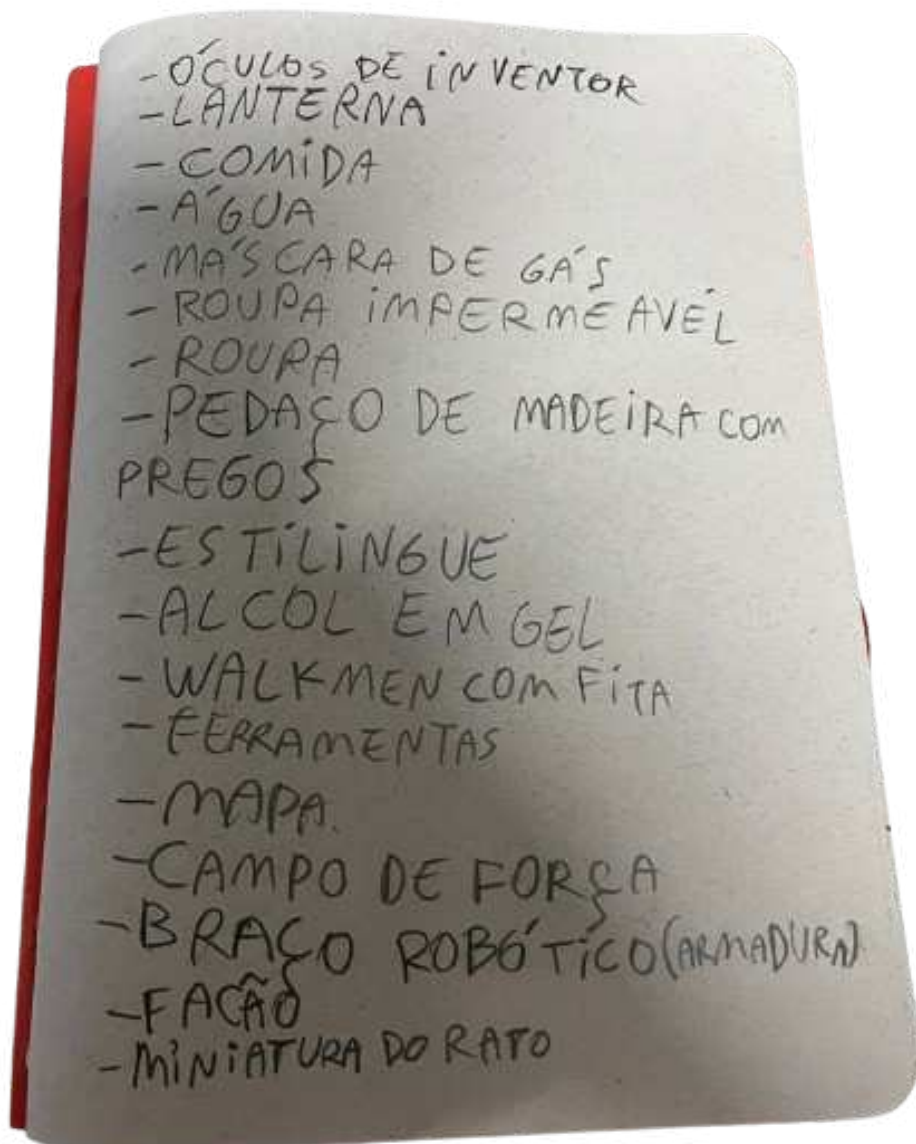 -ÓCULOS DE iNVENTOR
-LANTERNA
-COMiDA
-ÁGUA
-MÁSCARA DE GÁS
-ROUPA iMPERMEAVÉL
-ROUPA
-PEDAÇO DE MADEiRA COM
PREGOS
-ESTiLiNGUE
-ALCOL EM GEL
-WALKMEN COM FiTA
-FERRAMENTAS
-MAPA.
-CAMPO DE FORÇA
-BRAÇO ROBÓTiCO(ARMADURA)
-FACÃO
-MiNiATURA DO RATO